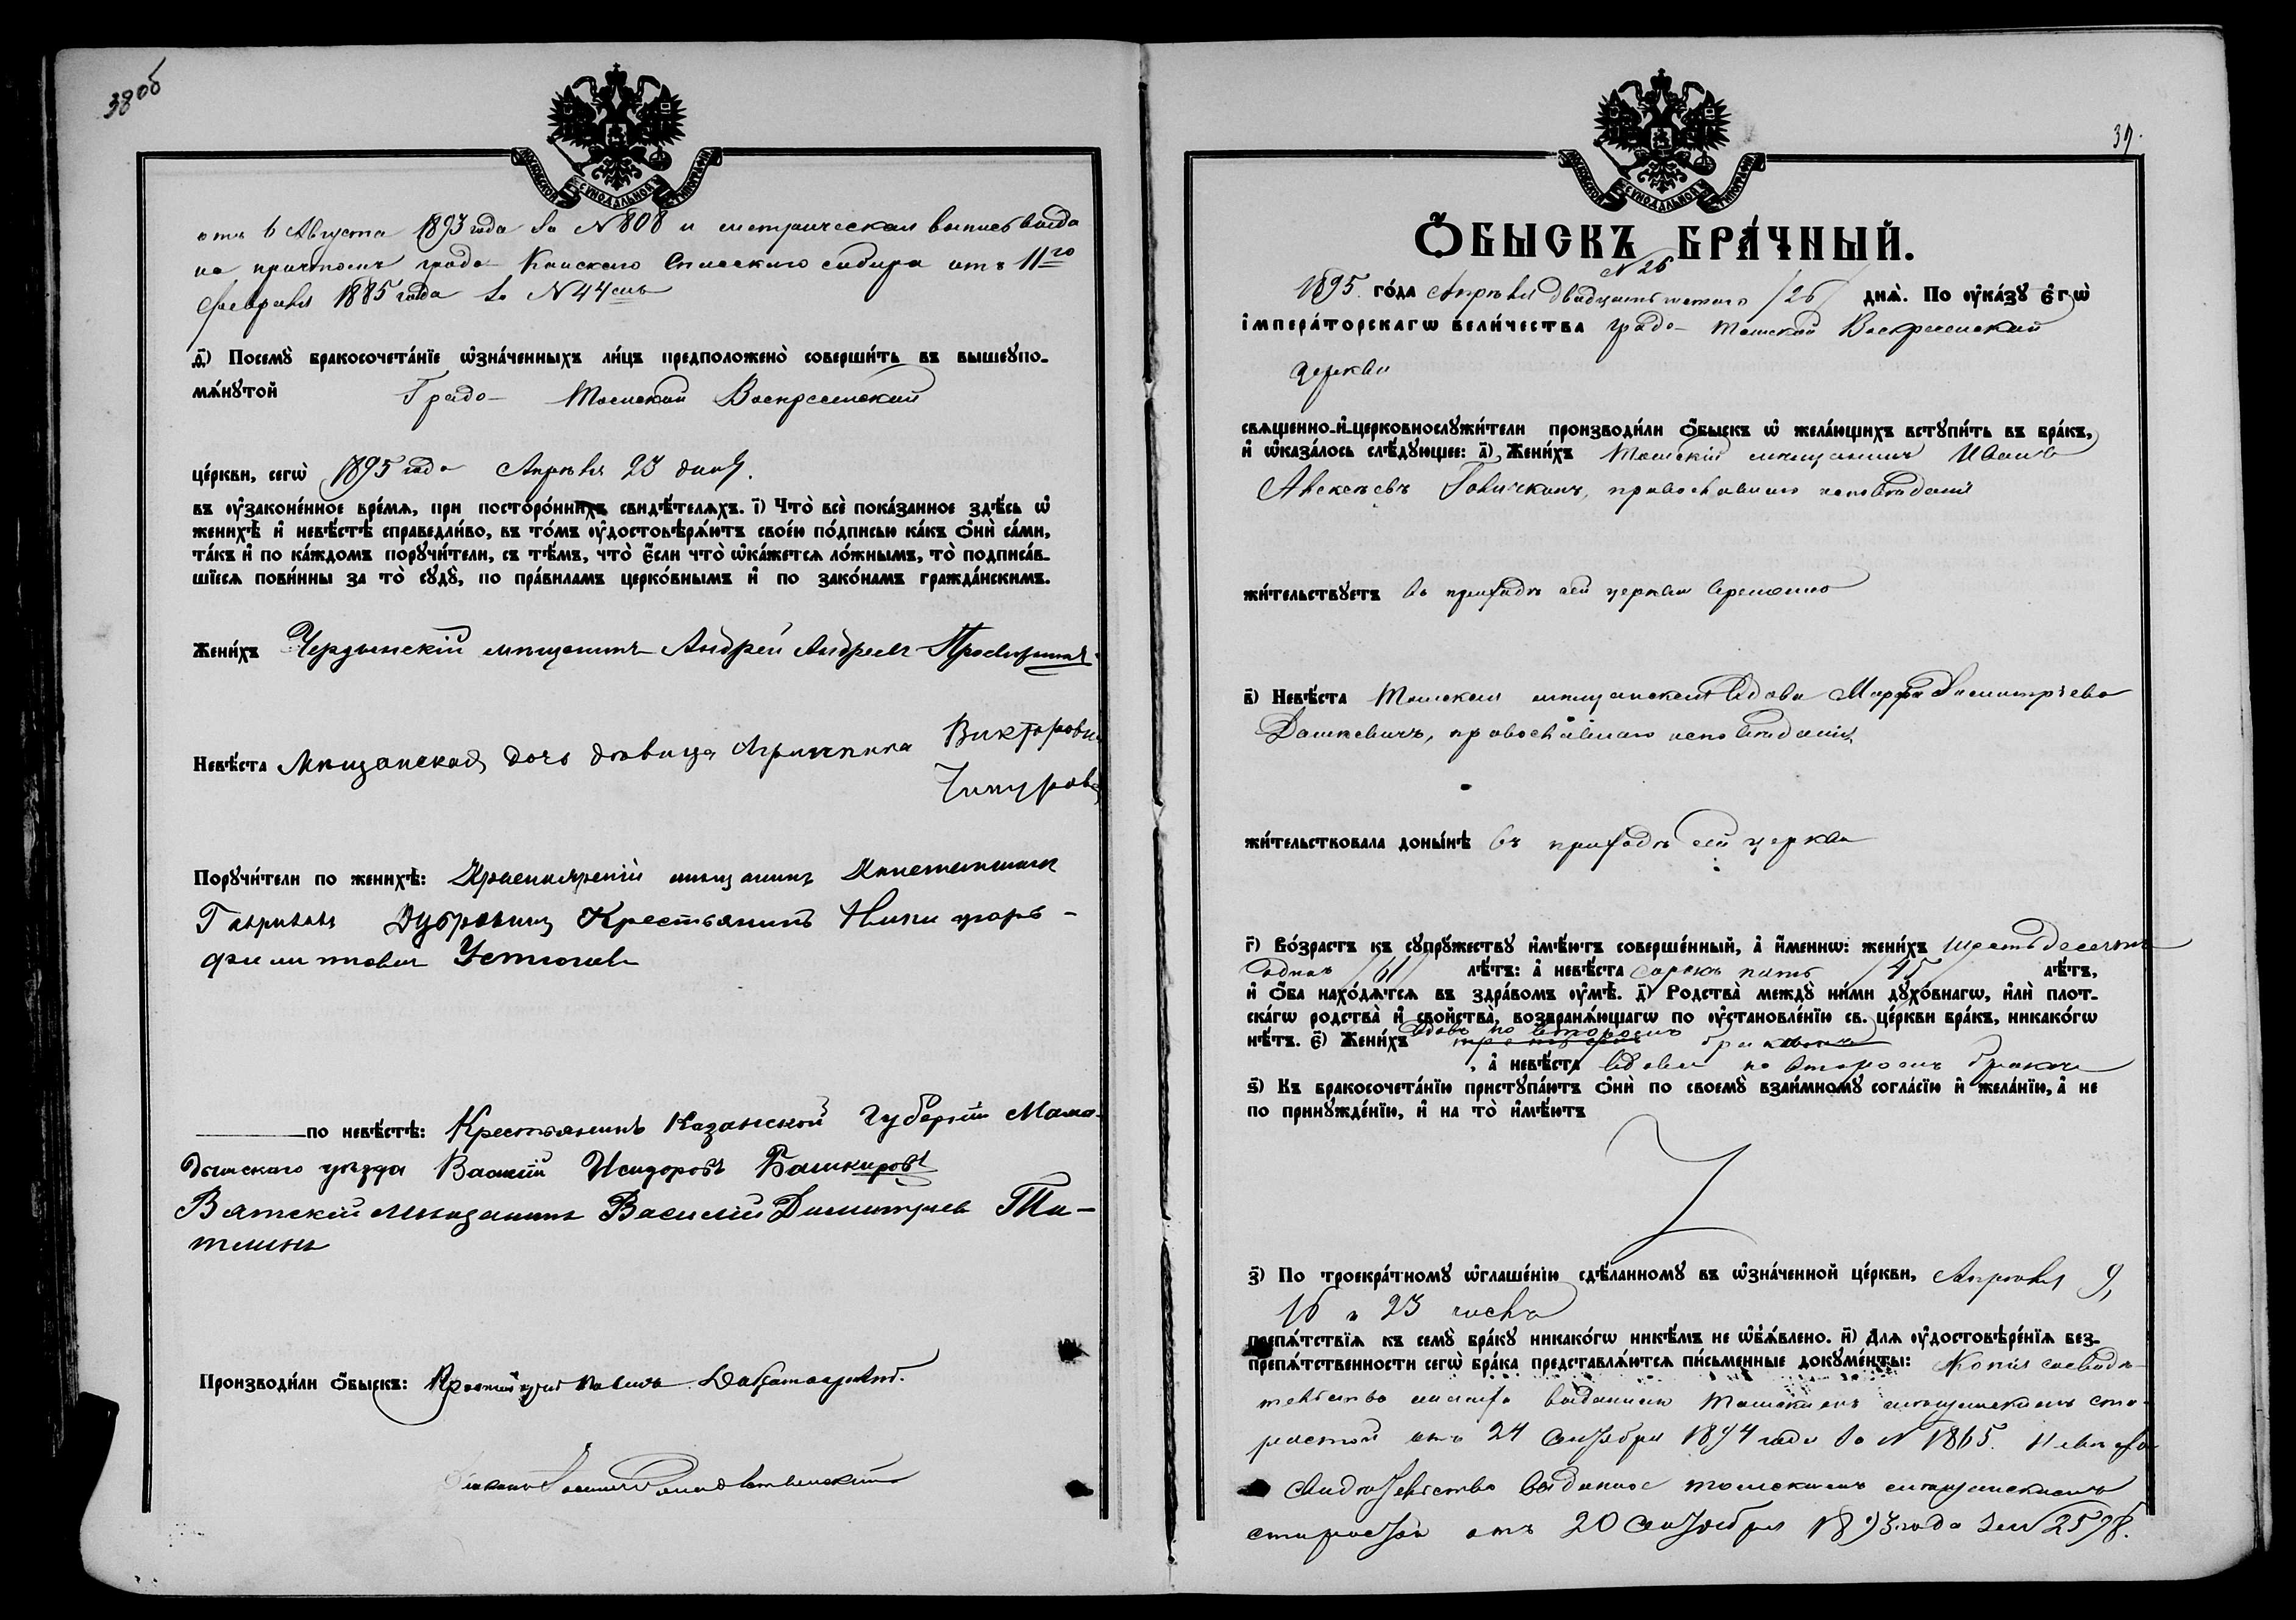 38 об
МОСКОВСКОЙ СУНОДАЛЬНОЙ ТИПОГРАФІИ
отъ 6 Августа 1893 года за № 808 и метрическая выпись выда
на причтомъ градо- Каинскаго Спасскаго собора отъ 11го
февраля 1885 года за № 44мъ
д҃і) Посемꙋ̀ бракосочета́нїе ѡ҆зна́ченныхъ ли́цъ предположено̀ соверши́ть въ вышеꙋпо-
мѧ́нꙋтой Градо- Томской Воскресенской
це́ркви, сегѡ̀ 1895 года Апрѣля 23 дня.
въ ᲂу҆законе́нное вре́мѧ, при посторо́ннихъ свидѣ́телѧхъ. і҃) Что̀ всѐ пока́занное здѣ́сь ѡ҆
женихѣ̀ и҆ невѣ́стѣ справедли́во, въ то́мъ ᲂу҆достовѣрѧ́ютъ свое́ю по́дписью ка́къ ѻ҆нѝ са́ми,
та́къ и҆ по ка́ждомъ порꙋчи́тели, съ тѣ́мъ, что̀ є҆́сли что̀ ѡ҆ка́жетсѧ ло́жнымъ, то̀ подписа́в-
шїесѧ пови́нны за то̀ сꙋдꙋ̀, по пра́виламъ церко́внымъ и҆ по зако́намъ гражда́нскимъ.
Жени́хъ Чердынскій мѣщанинъ Андрей Андреевъ
Невѣ́ста Мѣщанская дочь дѣвица Агриппина Викторовна
Порꙋчи́тели по женихѣ̀: Красноярскій мѣщанинъ Константинъ
Гавриловъ Дубровинъ Крестьянинъ Никифоръ
Филипповъ Устюговъ
по невѣ́стѣ: Крестьянинъ Казанской губерніи Мама-
дышскаго уѣзда Василій Исидоровъ Башкировъ
Вятскій мѣщанинъ Василій Димитріевъ
Производи́ли ѻ҆́быскъ:
39.
МОСКОВСКОЙ СУНОДАЛЬНОЙ ТИПОГРАФІИ
Ѻ҆́БЫСКЪ БРА́ЧНЫЙ.
№ 26
1895 го́да Апрѣля двадцать шестаго /26/ днѧ̀. По ᲂу҆ка́зꙋ є҆гѡ̀
і҆мпера́торскагѡ вели́чества градо- Томской Воскресенской
церкви
свѧщенно-и҆-церковнослꙋжи́тели производи́ли ѻ҆́быскъ ѡ҆ жела́ющихъ встꙋпи́ть въ бра́къ,
и҆ ѡ҆каза́лось слѣ́дꙋющее: а҃) Жени́хъ Томскій мѣщанинъ Иванъ
Алексѣевъ православнаго исповѣданія
жи́тельствꙋетъ въ приходѣ сей церкви временно
в҃) Невѣ́ста Томская мѣщанская вдова Марфа Димитріева
Дашкевичъ, православнаго исповѣданія
жи́тельствовала доны́нѣ въ приходѣ сей церкви
г҃) Во́зрастъ къ сꙋпрꙋ́жествꙋ и҆мѣ́ютъ соверше́нный, а҆ и҆́меннѡ: жени́хъ шестьдесятъ
одинъ /61/ лѣ́тъ: а҆ невѣ́ста сорокъ пять /45/ лѣ́тъ,
и҆ ѻ҆́ба нахо́дѧтсѧ въ здра́вомъ ᲂу҆мѣ̀. д҃) Родства̀ междꙋ̀ ни́ми дꙋхо́внагѡ, и҆лѝ плот-
ска́гѡ родства̀ и҆ сво́йства, возбранѧ́ющагѡ по ᲂу҆становле́нїю св. це́ркви бра́къ, никако́гѡ
нѣ́тъ. є҃) Жени́хъ вдовъ по второмъ бракѣ
, а҆ невѣ́ста вдова по второмъ бракѣ
ѕ҃) Къ бракосочета́нїю пристꙋпа́ютъ ѻ҆нѝ по своемꙋ̀ взаи́мномꙋ согла́сїю и҆ жела́нїю, а҆ не
по принꙋжде́нїю, и҆ на то̀ и҆мѣ́ютъ
з҃) По троекра́тномꙋ ѡ҆глаше́нїю сдѣ́ланномꙋ въ ѡ҆зна́ченной це́ркви, Апрѣля 9,
16 и 23 числа
препѧ́тствїѧ къ семꙋ̀ бра́кꙋ никако́гѡ никѣ́мъ не ѡ҆б̾ѧ́влено. и҃) Длѧ ᲂу҆достовѣре́нїѧ без-
препѧ́тственности сегѡ̀ бра́ка представлѧ́ютсѧ пи́сьменные докꙋме́нты: Копія свидѣ-
тельство жениха выданная Томскимъ мѣщанскимъ ста-
ростой отъ 24 Сентября 1894 года за № 1865. Невѣста
свидѣтельство выданное томскимъ мѣщанскимъ
старостой отъ 20 Сентября 1893 года за № 2598.